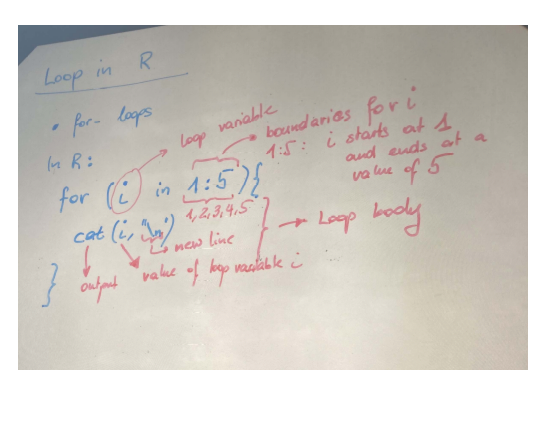 Loop in R
• for-loops
In R:
loop variable
boundaries for i
1:5: i starts at 1
and ends at a
value of 5
for (i in 1:5){
1,2,3,4,5
cat (i, "\n")
new line
Loop body
output
value of loop variable i
}